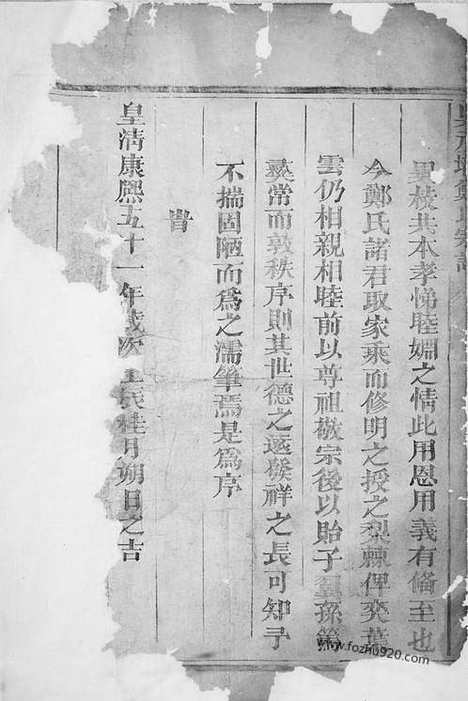 異枝共本孝悌睦婣之情此用恩用義有備至也
今鄭氏諸君取家乘而修明之授之梨棘俾奕葉
雲仍相親相睦前以尊祖敬宗後以貽子翼孫篤
彝常而敦秩序則其世德之遠發祥之長可知予
不揣固陋而爲之濡筆焉是爲序
旹
皇清康熙五十一年歲次壬辰桂月朔日之吉
www.fozhu920.com